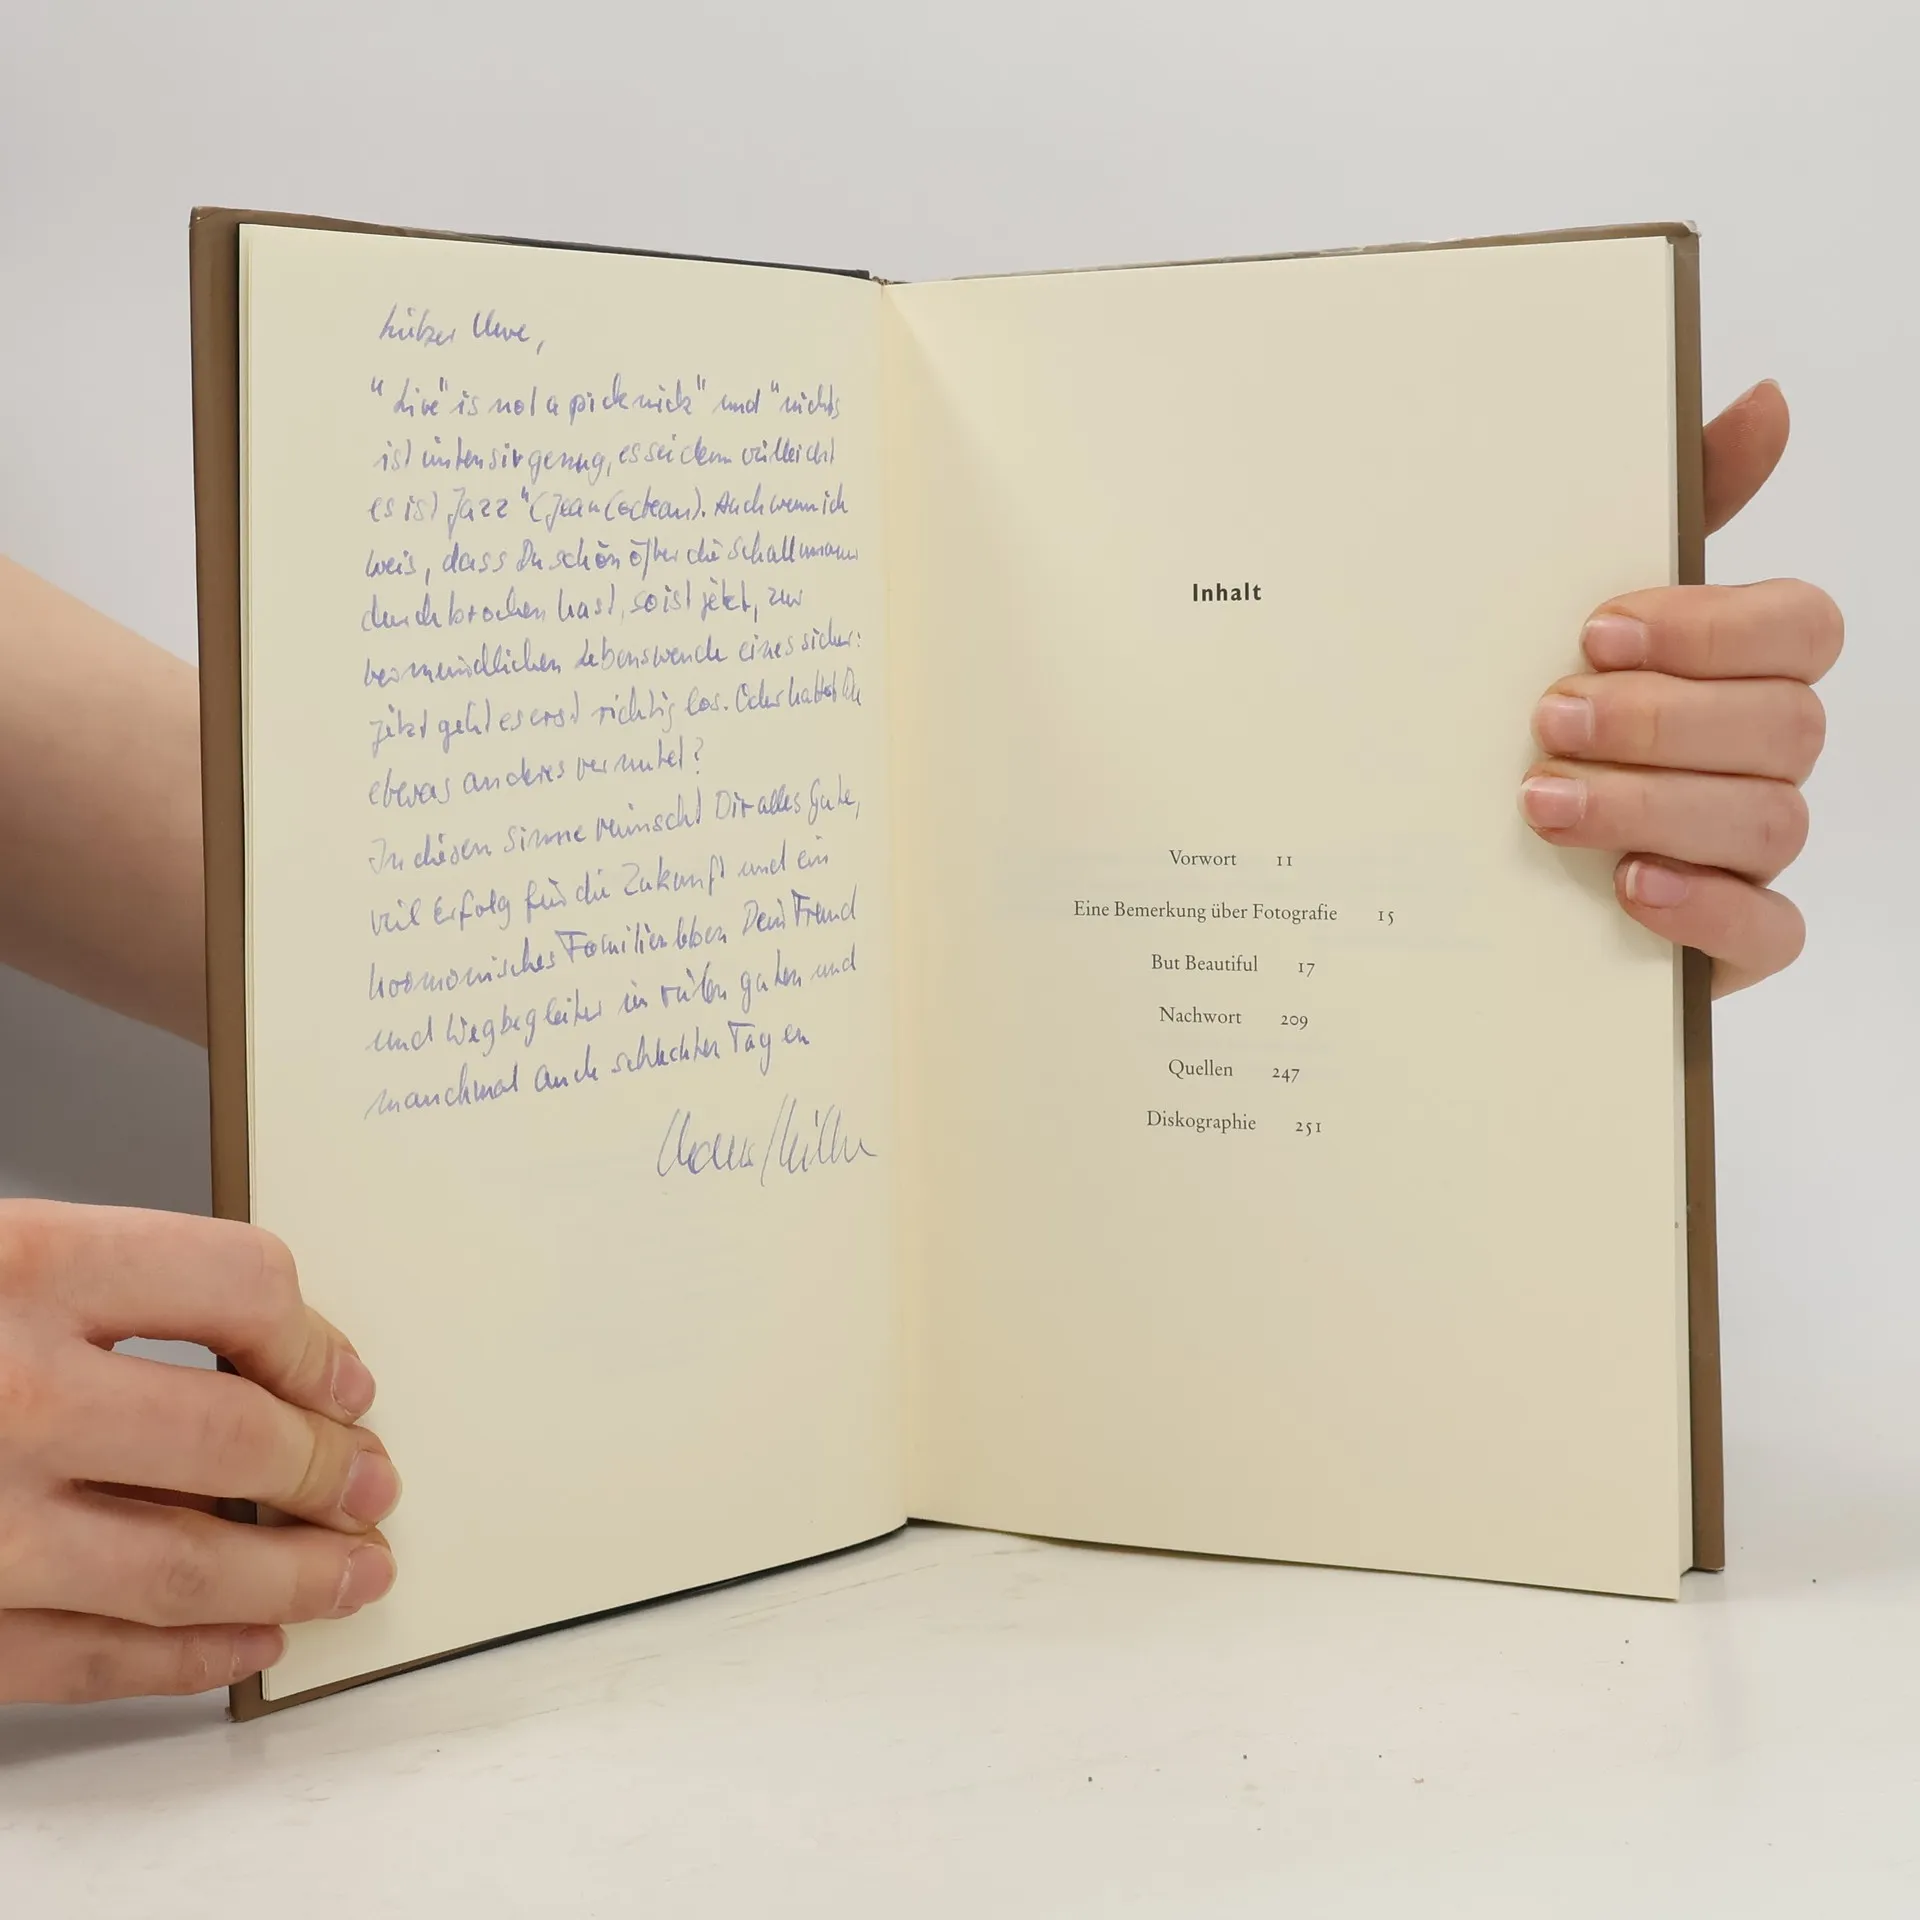 Lieber Uwe,
"Live" is not a picknick" und "nichts
ist intensiv genug, es sei denn vielleicht
es ist Jazz" (Jean Cocteau). Auch wenn ich
weis, dass Du schön öfter die Schallmauer
durchbrochen hast, so ist jetzt, zur
vermeindlichen Lebenswende eines sicher:
jetzt geht es erst richtig los. Oder hattest Du
etwas anderes vermutet?
In diesem Sinne wünscht Dir alles Gute,
viel Erfolg für die Zukunft und ein
harmonisches Familienleben Dein Freund
und Wegbegleiter in vielen guten und
manchmal auch schlechten Tagen
Inhalt
Vorwort 11
Eine Bemerkung über Fotografie 15
But Beautiful 17
Nachwort 209
Quellen 247
Diskographie 251